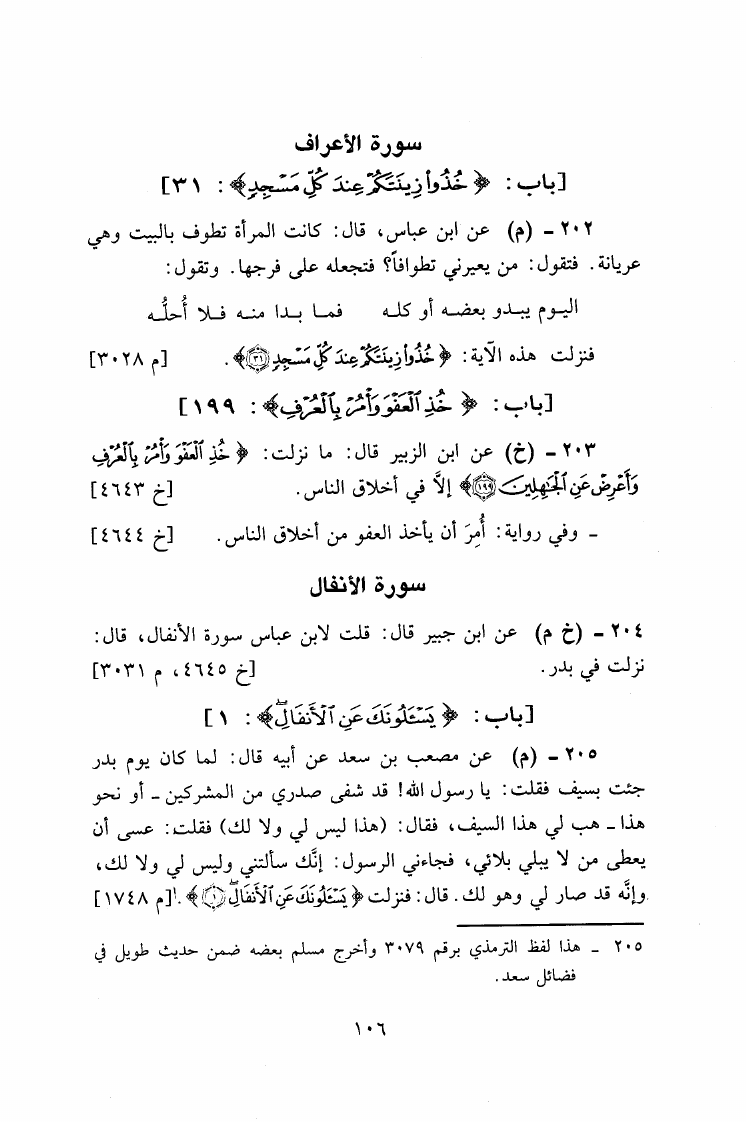 سورة الأعراف
[باب: ﴿خُذُوا زِينَتَكُمْ عِندَ كُلِّ مَسْجِدٍ﴾: ٣١]
٢٠٢ - (م) عن ابن عباس، قال: كانت المرأة تطوف بالبيت وهي
عريانة. فتقول: من يعيرني تطوافاً؟ فتجعله على فرجها. وتقول:
اليوم يبدو بعضه أو كله فما بدا منه فلا أُحلُّه
فنزلت هذه الآية: ﴿خُذُوا زِينَتَكُمْ عِندَ كُلِّ مَسْجِدٍ ٣١﴾. [م ٣٠٢٨]
[باب: ﴿خُذِ ٱلْعَفْوَ وَأْمُرْ بِٱلْعُرْفِ﴾: ١٩٩]
٢٠٣ - (خ) عن ابن الزبير قال: ما نزلت: ﴿خُذِ ٱلْعَفْوَ وَأْمُرْ بِٱلْعُرْفِ
وَأَعْرِضْ عَنِ ٱلْجَٰهِلِينَ ١٩٩﴾ إلاَّ في أخلاق الناس. [خ ٤٦٤٣]
- وفي رواية: أُمِرَ أن يأخذ العفو من أخلاق الناس. [خ ٤٦٤٤]
سورة الأنفال
٢٠٤ - (خ م) عن ابن جبير قال: قلت لابن عباس سورة الأنفال، قال:
نزلت في بدر. [خ ٤٦٤٥، م ٣٠٣١]
[باب: ﴿يَسْـَٔلُونَكَ عَنِ ٱلْأَنفَالِۖ﴾: ١]
٢٠٥ - (م) عن مصعب بن سعد عن أبيه قال: لما كان يوم بدر
جئت بسيف فقلت: يا رسول الله! قد شفى صدري من المشركين - أو نحو
هذا - هب لي هذا السيف، فقال: (هذا ليس لي ولا لك) فقلت: عسى أن
يعطى من لا يبلي بلائي، فجاءني الرسول: إنَّك سألتني وليس لي ولا لك،
وإنَّه قد صار لي وهو لك. قال: فنزلت ﴿يَسْـَٔلُونَكَ عَنِ ٱلْأَنفَالِۖ ١﴾. [م ١٧٤٨]
٢٠٥ - هذا لفظ الترمذي برقم ٣٠٧٩ وأخرج مسلم بعضه ضمن حديث طويل في
فضائل سعد.
١٠٦